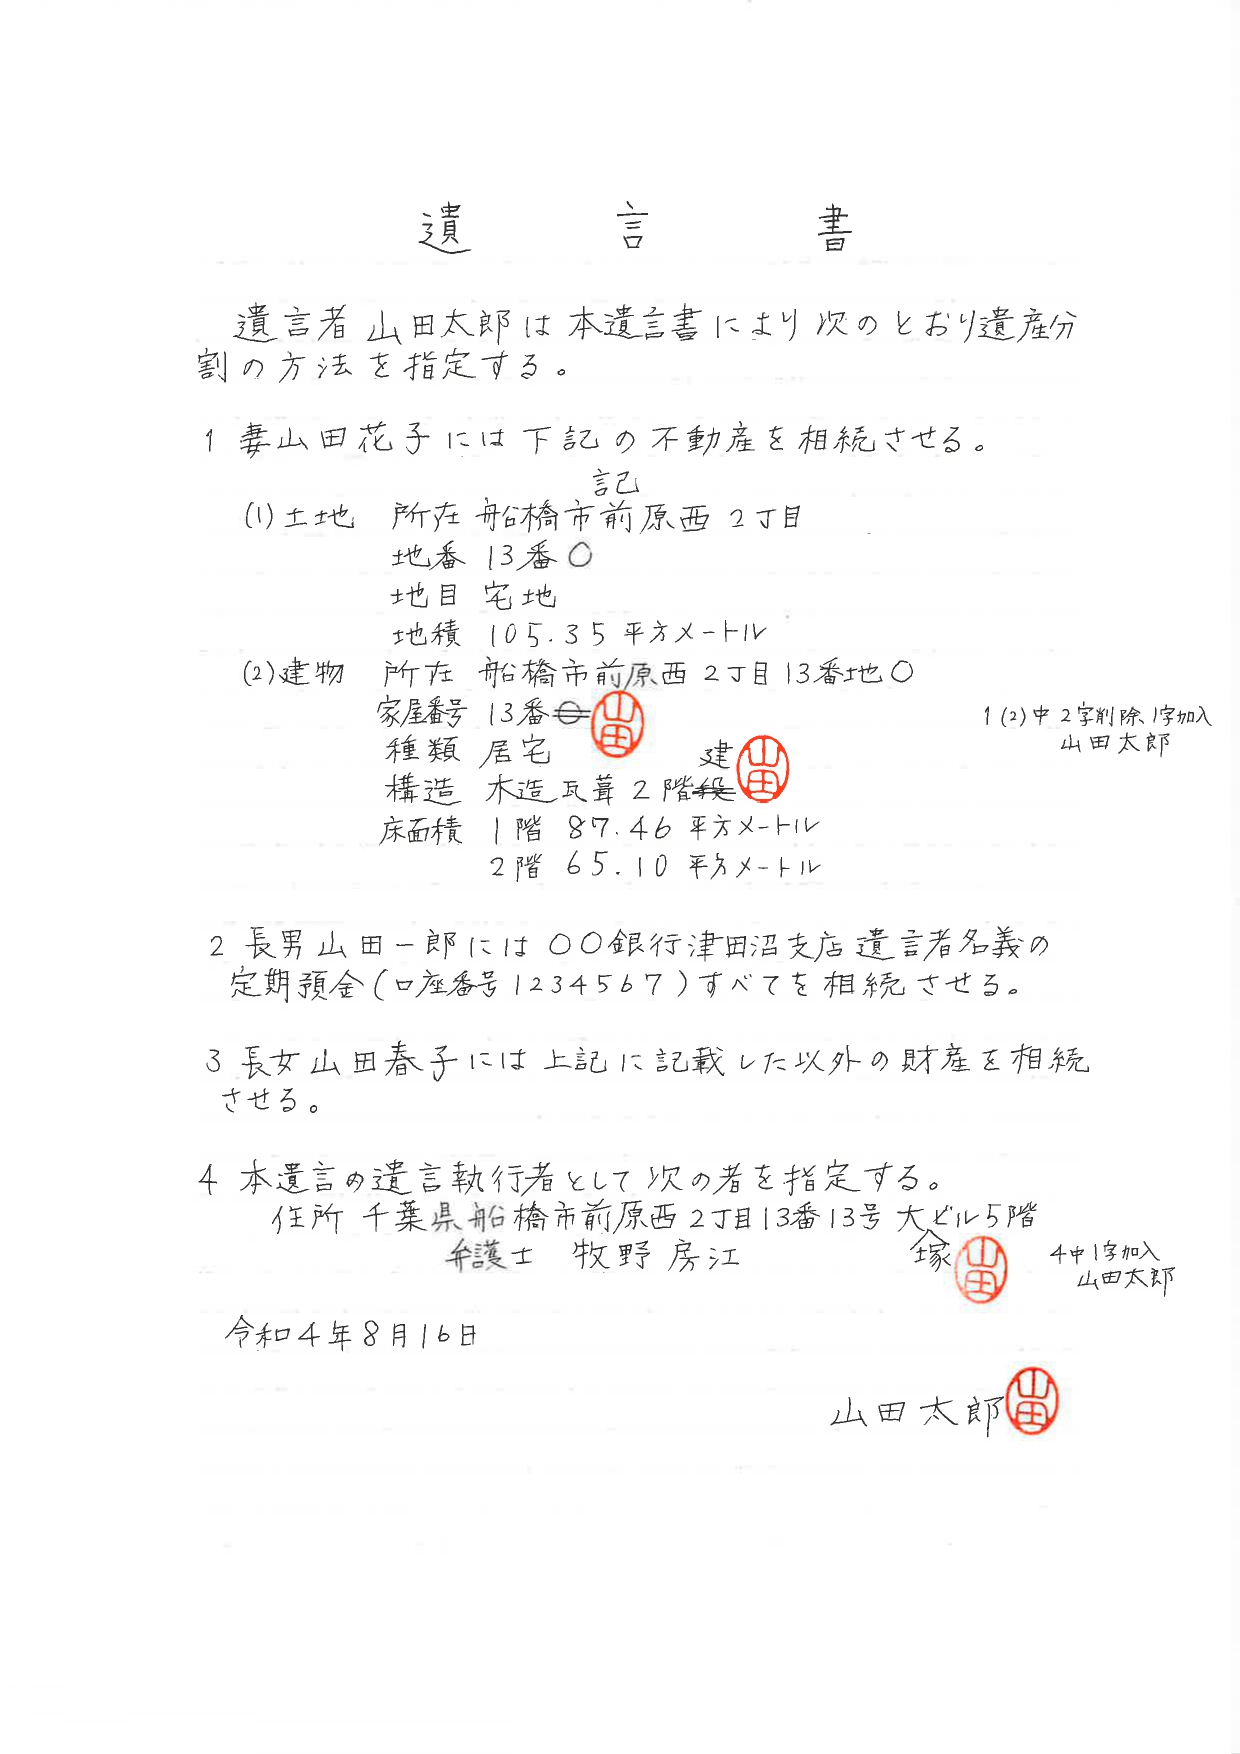 遺言書
遺言者山田太郎は本遺言書により次のとおり遺産分
割の方法を指定する。
1 妻山田花子には下記の不動産を相続させる。
記
(1)土地 所在 船橋市前原西2丁目
地番 13番〇
地目 宅地
地積 105.35平方メートル
(2)建物 所在 船橋市前原西2丁目13番地〇
家屋番号 13番〇 山田
1(2)中2字削除、1字加入
山田太郎
種類 居宅
建 山田
構造 木造瓦葺2階段
床面積 1階 87.46平方メートル
2階 65.10平方メートル
2 長男山田一郎には〇〇銀行津田沼支店遺言者名義の
定期預金(口座番号1234567)すべてを相続させる。
3 長女山田春子には上記に記載した以外の財産を相続
させる。
4 本遺言の遺言執行者として次の者を指定する。
住所 千葉県船橋市前原西2丁目13番13号 大ビル5階
弁護士 牧野房江 塚 山田
4中1字加入
山田太郎
令和4年8月16日
山田太郎 山田